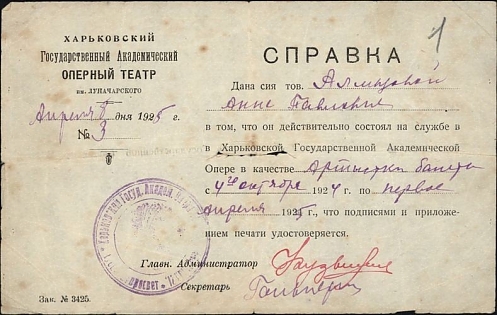 1
ХАРЬКОВСКИЙ
Государственный Академический
ОПЕРНЫЙ ТЕАТР
им. ЛУНАЧАРСКОГО
Апреля 8 дня 1925 г.
№ 3
СПРАВКА
Дана сия тов.
Анне Павловне
в том, что он действительно состоял на службе в
в Харьковской Государственной Академической
Опере в качестве Артистки балета
с 4го октября 1924 г. по первое
апреля 1925 г., что подписями и приложе-
нием печати удостоверяется.
Главн. Администратор
Секретарь
Зак. № 3425.